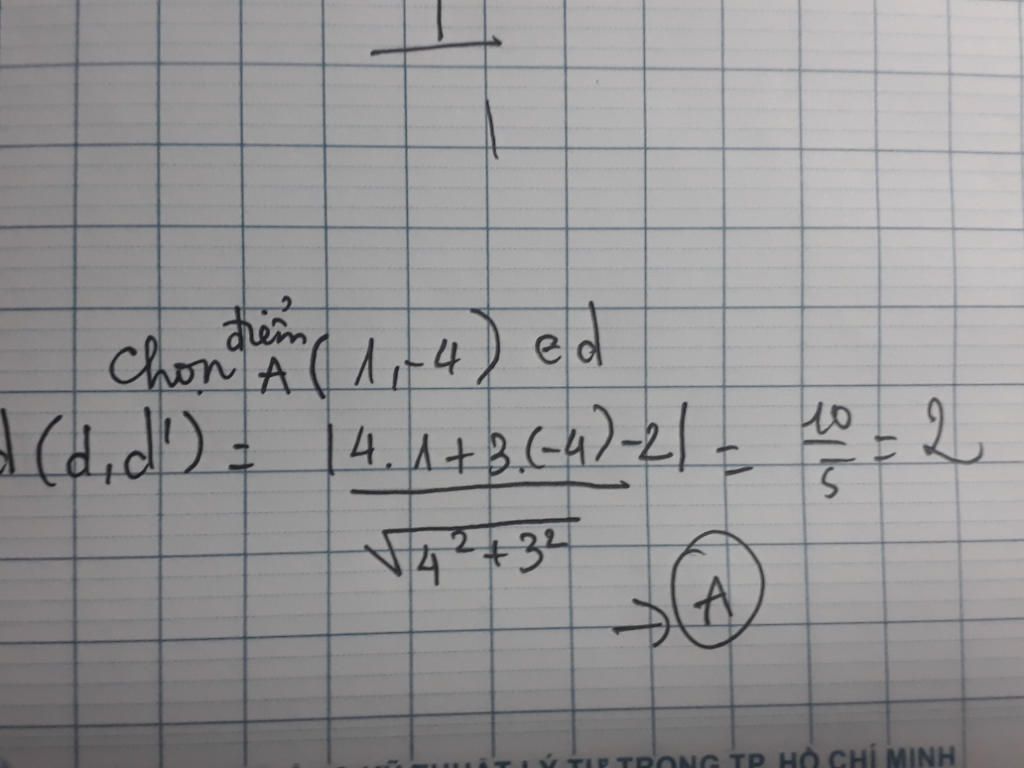 Chọn điểm A(1,-4) ∈ d
d(d,d') = |4.1+3.(-4)-2| / √4²+3² = 10/5 = 2
→ A
THUẬT LÝ TỰ TRỌNG TP. HỒ CHÍ MINH